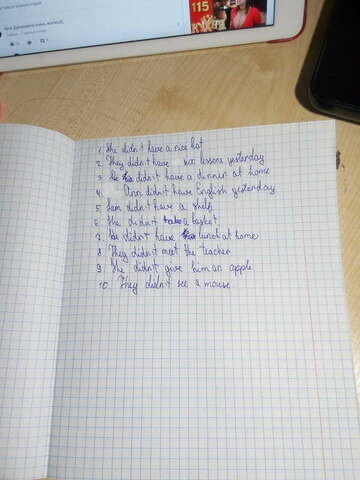 115
1. She didn't have a nice hat
2. They didn't have six lessons yesterday
3. He didn't have a dinner at home
4. Ann didn't have English yesterday
5. Sam didn't have a shelf
6. She didn't take a basket
7. He didn't have lunch at home
8. They didn't meet the teacher
9. She didn't give him an apple
10. They didn't see a mouse